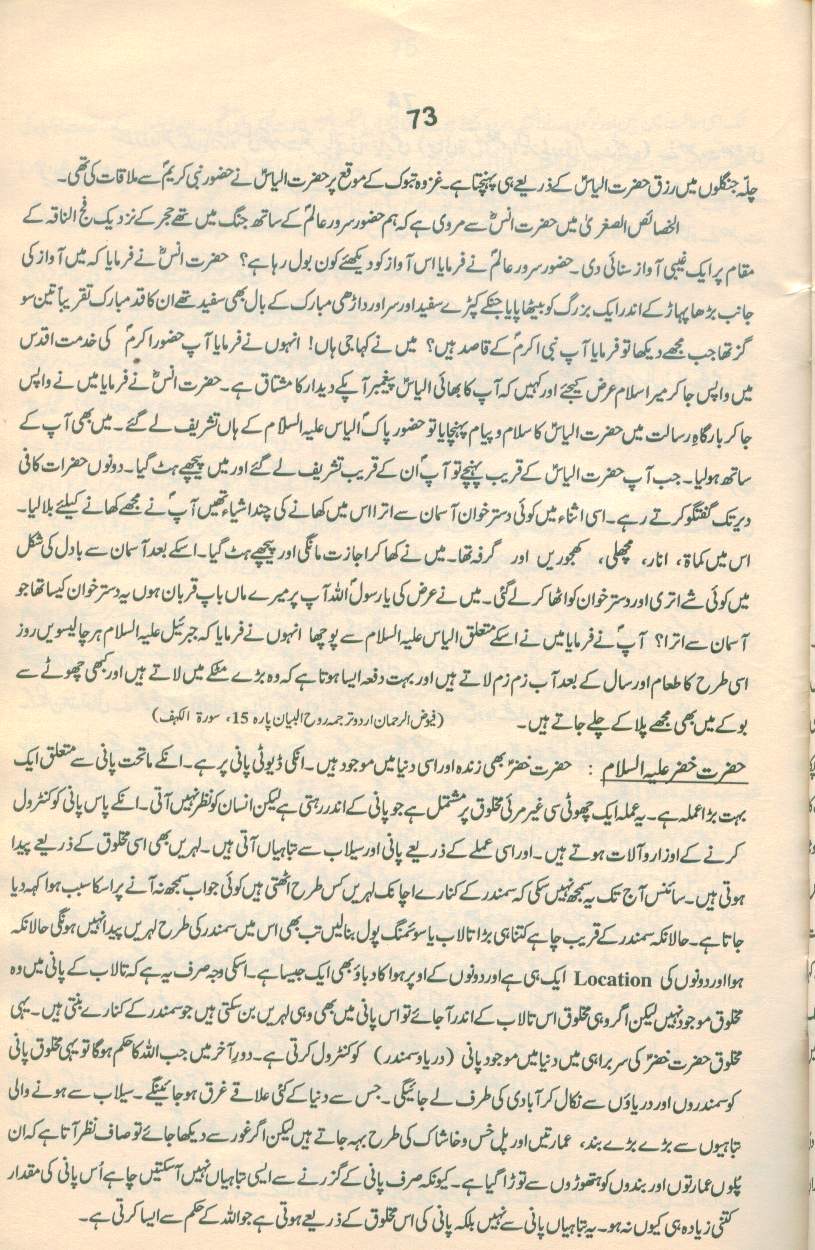 73
چلہ جنگلوں میں رزق حضرت الیاسؑ کے ذریعے ہی پہنچتا ہے۔ غزوہ تبوک کے موقع پر حضرت الیاسؑ نے حضور نبی کریمؐ سے ملاقات کی تھی۔
الخصائص الصغریٰ میں حضرت انسؓ سے مروی ہے کہ ہم حضور سرور عالمؐ کے ساتھ جنگ میں تھے حجر کے نزدیک فج الناقہ کے
مقام پر ایک غیبی آواز سنائی دی۔ حضور سرور عالمؐ نے فرمایا اس آواز کو دیکھئے کون بول رہا ہے؟ حضرت انسؓ نے فرمایا کہ میں آواز کی
جانب بڑھا پہاڑ کے اندر ایک بزرگ کو بیٹھا پایا جنکے کپڑے سفید اور سر اور داڑھی مبارک کے بال بھی سفید تھے ان کا قد مبارک تقریباً تین سو
گز تھا جب مجھے دیکھا تو فرمایا آپ نبی اکرمؐ کے قاصد ہیں؟ میں نے کہا جی ہاں! انہوں نے فرمایا آپ حضور اکرمؐ کی خدمت اقدس
میں واپس جا کر میرا سلام عرض کیجئے اور کہیں کہ آپ کا بھائی الیاسؑ پیغمبر آپکے دیدار کا مشتاق ہے۔ حضرت انسؓ نے فرمایا میں نے واپس
جا کر بارگاہِ رسالت میں حضرت الیاسؑ کا سلام و پیام پہنچایا تو حضور پاکؐ الیاس علیہ السلام کے ہاں تشریف لے گئے۔ میں بھی آپ کے
ساتھ ہولیا۔ جب آپ حضرت الیاسؑ کے قریب پہنچے تو آپؐ ان کے قریب تشریف لے گئے اور میں پیچھے ہٹ گیا۔ دونوں حضرات کافی
دیر تک گفتگو کرتے رہے۔ اسی اثناء میں کوئی دستر خوان آسمان سے اترا اس میں کھانے کی چند اشیاء تھیں آپؐ نے مجھے کھانے کیلئے بلا لیا۔
اس میں کماۃ، انار، مچھلی، کھجوریں اور گرفہ تھا۔ میں نے کھا کر اجازت مانگی اور پیچھے ہٹ گیا۔ اسکے بعد آسمان سے بادل کی شکل
میں کوئی شے اتری اور دستر خوان کو اٹھا کر لے گئی۔ میں نے عرض کی یا رسولؐ اللہ آپ پر میرے ماں باپ قربان ہوں یہ دستر خوان کیسا تھا جو
آسمان سے اترا؟ آپؐ نے فرمایا میں نے اسکے متعلق الیاس علیہ السلام سے پوچھا انہوں نے فرمایا کہ جبرئیل علیہ السلام ہر چالیسویں روز
اسی طرح کا طعام اور سال کے بعد آب زم زم لاتے ہیں اور بہت دفعہ ایسا ہوتا ہے کہ وہ بڑے مٹکے میں لاتے ہیں اور کبھی چھوٹے سے
بوکے میں بھی مجھے پلا کے چلے جاتے ہیں۔ (فیوض الرحمان اردو ترجمہ روح البیان پارہ 15، سورۃ الکہف)
حضرت خضر علیہ السلام : حضرت خضرؑ بھی زندہ اور اسی دنیا میں موجود ہیں۔ انکی ڈیوٹی پانی پر ہے۔ انکے ماتحت پانی سے متعلق ایک
بہت بڑا عملہ ہے۔ یہ عملہ ایک چھوٹی سی غیر مرئی مخلوق پر مشتمل ہے جو پانی کے اندر رہتی ہے لیکن انسان کو نظر نہیں آتی۔ انکے پاس پانی کو کنٹرول
کرنے کے اوزار و آلات ہوتے ہیں۔ اور اسی عملے کے ذریعے پانی اور سیلاب سے تباہیاں آتی ہیں۔ لہریں بھی اسی مخلوق کے ذریعے پیدا
ہوتی ہیں۔ سائنس آج تک یہ سمجھ نہیں سکی کہ سمندر کے کنارے اچانک لہریں کس طرح اٹھتی ہیں کوئی جواب سمجھ نہ آنے پر اسکا سبب ہوا کہہ دیا
جاتا ہے۔ حالانکہ سمندر کے قریب چاہے کتنا ہی بڑا تالاب یا سوئمنگ پول بنالیں تب بھی اس میں سمندر کی طرح لہریں پیدا نہیں ہونگی حالانکہ
ہوا اور دونوں کی Location ایک ہی ہے اور دونوں کے اوپر ہوا کا دباؤ بھی ایک جیسا ہے۔ اسکی وجہ صرف یہ ہے کہ تالاب کے پانی میں وہ
مخلوق موجود نہیں لیکن اگر وہی مخلوق اس تالاب کے اندر آ جائے تو اس پانی میں بھی وہی لہریں بن سکتی ہیں جو سمندر کے کنارے بنتی ہیں۔ یہی
مخلوق حضرت خضرؑ کی سربراہی میں دنیا میں موجود پانی (دریا و سمندر) کو کنٹرول کرتی ہے۔ دورِ آخر میں جب اللہ کا حکم ہوگا تو یہی مخلوق پانی
کو سمندروں اور دریاؤں سے نکال کر آبادی کی طرف لے جائیگی۔ جس سے دنیا کے کئی علاقے غرق ہو جائینگے۔ سیلاب سے ہونے والی
تباہیوں سے بڑے بڑے بند، عمارتیں اور پل خس و خاشاک کی طرح بہہ جاتے ہیں لیکن اگر غور سے دیکھا جائے تو صاف نظر آتا ہے کہ ان
پلوں عمارتوں اور بندوں کو ہتھوڑوں سے توڑا گیا ہے۔ کیونکہ صرف پانی کے گزرنے سے ایسی تباہیاں نہیں آسکتیں چاہے اُس پانی کی مقدار
کتنی زیادہ ہی کیوں نہ ہو۔ یہ تباہیاں پانی سے نہیں بلکہ پانی کی اس مخلوق کے ذریعے ہوتی ہے جو اللہ کے حکم سے ایسا کرتی ہے۔